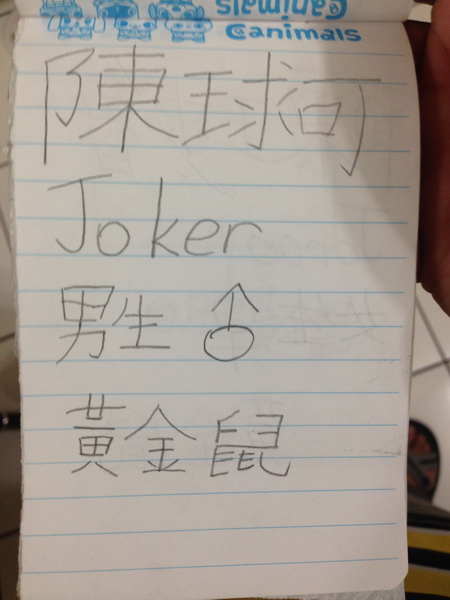 Canimals
Canimals
陳球何
Joker
男生 ♂
黃金鼠